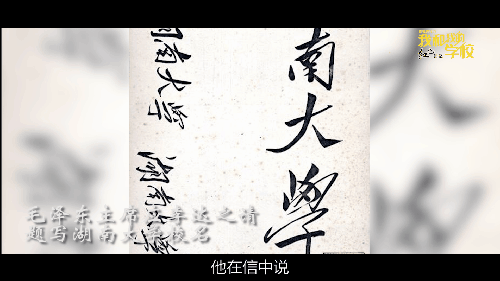 学校
南大學
湖南大學 湖南大學
毛泽东主席应李达之请
题写湖南大学校名
他在信中说